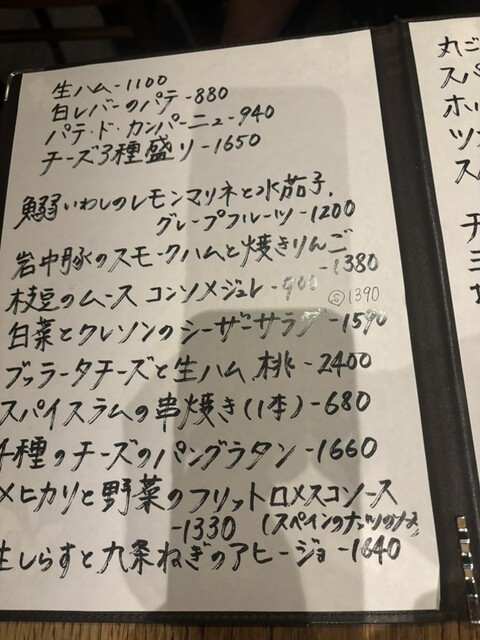 生ハム-1100
白レバーのパテ-880
パテ・ド・カンパーニュ-940
チーズ3種盛り-1650
鰯いわしのレモンマリネと水茄子.
グレープフルーツ-1200
岩中豚のスモークハムと焼きりんご
-1380
枝豆のムース コンソメジュレ-900
Ⓢ1390
白菜とクレソンのシーザーサラダ-1590
ブッラータチーズと生ハム 桃-2400
スパイスラムの串焼き(1本)-680
4種のチーズのパングラタン-1660
メヒカリと野菜のフリットロメスコソース
-1330 (スペインのナッツの
生しらすと九条ねぎのアヒージョ-1640
丸ご
スパ
ホ
ツ
ス
チ
三